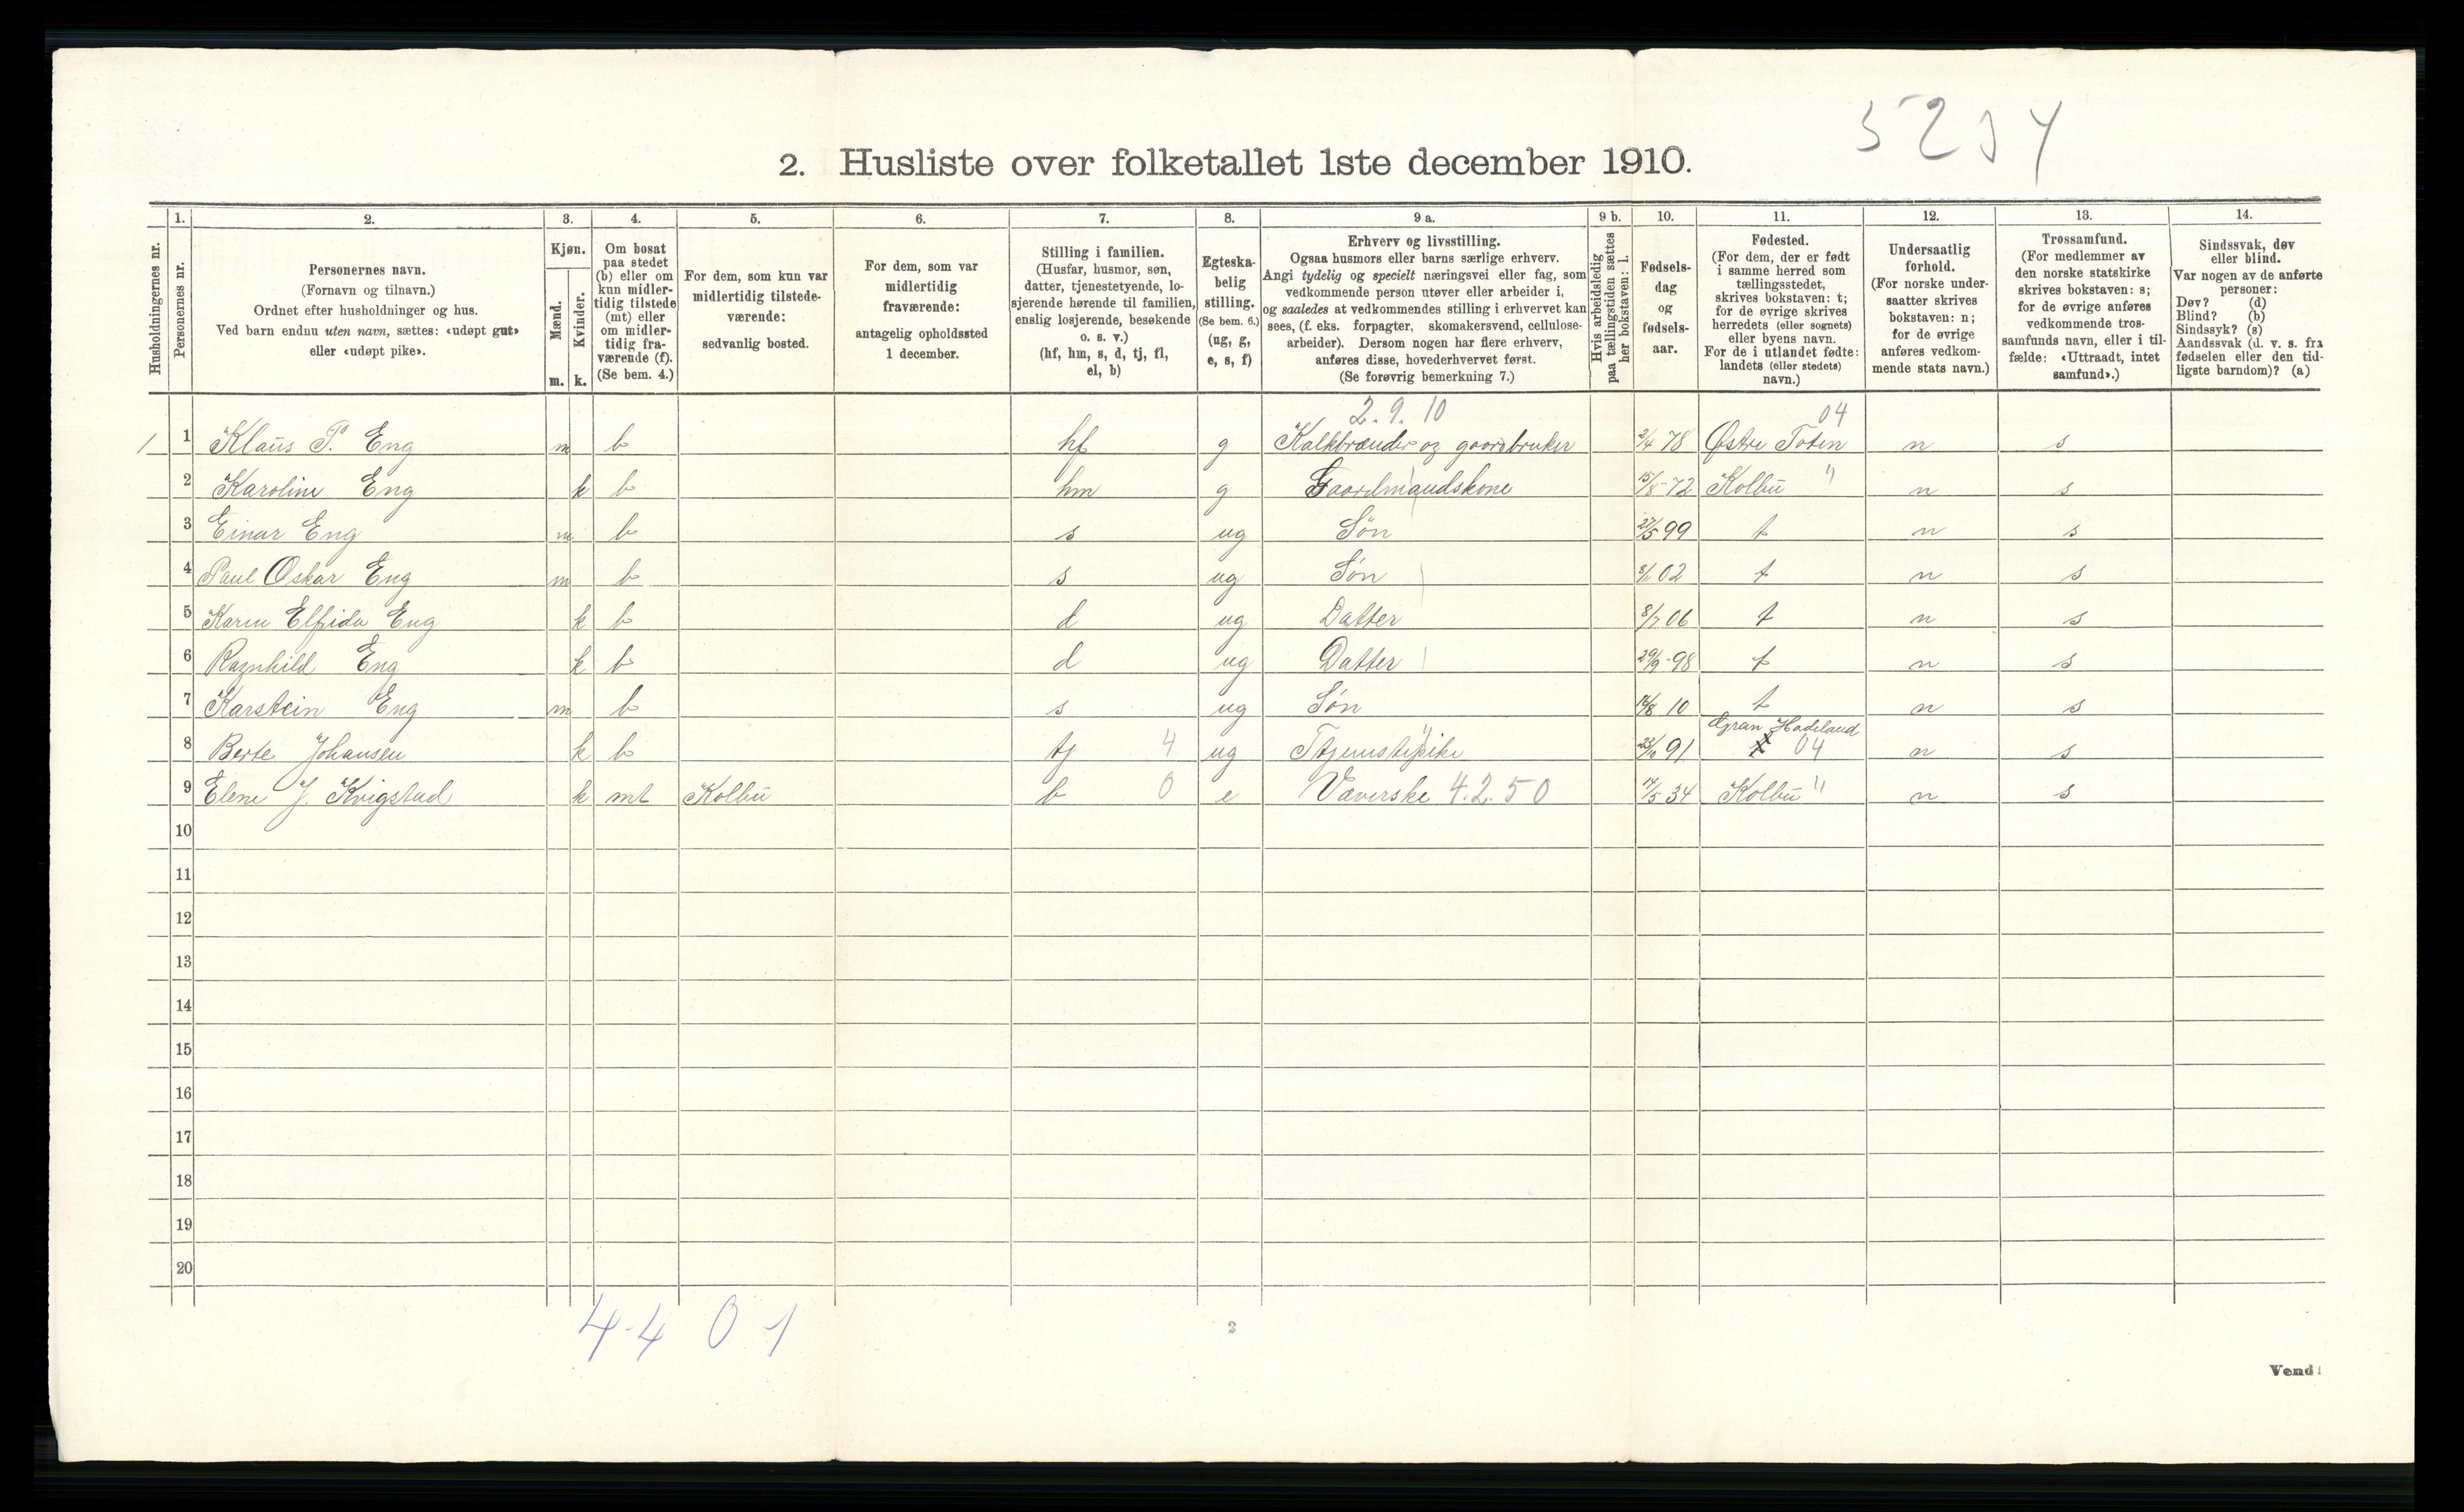 5234
2. Husliste over folketallet 1ste december 1910.
1. 2. 3. 4. 5. 6. 7. 8. 9 a. 9 b. 10. 11. 12. 13. 14.
Husholdningernes nr.
Personernes nr.
Personernes navn.
(Fornavn og tilnavn.)
Ordnet efter husholdninger og hus.
Ved barn endnu uten navn, sættes: «udøpt gut»
eller «udøpt pike».
Kjøn.
Mænd.
Kvinder.
m. k.
Om bosat
paa stedet
(b) eller om
kun midler-
tidig tilstede
(mt) eller
om midler-
tidig fra-
værende (f).
(Se bem. 4.)
For dem, som kun var
midlertidig tilstede-
værende:
sedvanlig bosted.
For dem, som var
midlertidig
fraværende:
antagelig opholdssted
1 december.
Stilling i familien.
(Husfar, husmor, søn,
datter, tjenestetyende, lo-
sjerende hørende til familien,
enslig losjerende, besøkende
o. s. v.)
(hf, hm, s, d, tj, fl,
el, b)
Egteska-
belig
stilling.
(Se bem. 6.)
(ug, g,
e, s, f)
Erhverv og livsstilling.
Ogsaa husmors eller barns særlige erhverv.
Angi tydelig og specielt næringsvei eller fag, som
vedkommende person utøver eller arbeider i,
og saaledes at vedkommendes stilling i erhvervet kan
sees, (f. eks. forpagter, skomakersvend, cellulose-
arbeider). Dersom nogen har flere erhverv,
anføres disse, hovederhvervet først.
(Se forøvrig bemerkning 7.)
Hvis arbeidsledig
paa tællingstiden sættes
her bokstaven: l.
Fødsels-
dag
og
fødsels-
aar.
Fødested.
(For dem, der er født
i samme herred som
tællingsstedet,
skrives bokstaven: t;
for de øvrige skrives
herredets (eller sognets)
eller byens navn.
For de i utlandet fødte:
landets (eller stedets)
navn.)
Undersaatlig
forhold.
(For norske under-
saatter skrives
bokstaven: n;
for de øvrige
anføres vedkom-
mende stats navn.)
Trossamfund.
(For medlemmer av
den norske statskirke
skrives bokstaven: s;
for de øvrige anføres
vedkommende tros-
samfunds navn, eller i til-
fælde: «Uttraadt, intet
samfund».)
Sindssvak, døv
eller blind.
Var nogen av de anførte
personer:
Døv? (d)
Blind? (b)
Sindssyk? (s)
Aandssvak (d. v. s. fra
fødselen eller den tid-
ligste barndom)? (a)
2.9.10 04
1 1 Klaus P. Eng m b hf g Kalkbrænder og gaardbruker 2/4 78 Østre Toten n s
2 Karoline Eng k b hm g Gaardmandskone 15/8-72 Kolbu " n s
3 Einar Eng m b s ug Søn 27/5 99 t n s
4 Paul Oskar Eng m b s ug Søn 02 t n s
5 Karen Elfrida Eng k b d ug Datter 8/7 06 t n s
6 Ragnhild Eng k b d ug Datter 29/9-98 t n s
7 Karstein Eng m b s ug Søn 16/8 10 t n s
Gran Hadeland
8 Berte Johansen k b tj 4 ug Tjenestepike " 23/10 91 t 04 n s
9 Elene J. Kvigstad k mt Kolbu b 0 e Væverske 4.2.50 17/5 34 Kolbu " n s
10
11
12
13
14
15
16
17
18
19
20
4-4 0 1
2
Vend!